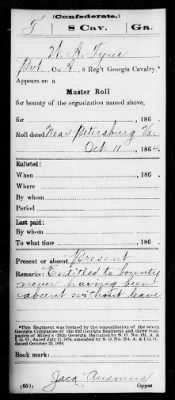 (Confederate.)
T 8 Cav. Ga.
W. A. Tyne
Pvt Co. A, 8 Reg't Georgia Cavalry.*
Appears on a
Muster Roll
for bounty of the organization named above,
for , 186 .
Roll dated Near Petersburg Va.
Oct 11, 1864.
Enlisted:
When , 186 .
Where
By whom
Period
Last paid:
By whom
To what time , 186 .
Present or absent Present
Remarks: Entitled to bounty
never having been
absent without leave
*This Regiment was formed by the consolidation of the seven
Georgia companies of the 62d Georgia Regiment and three com-
panies of
Book mark:
(635) Jack
Copyist